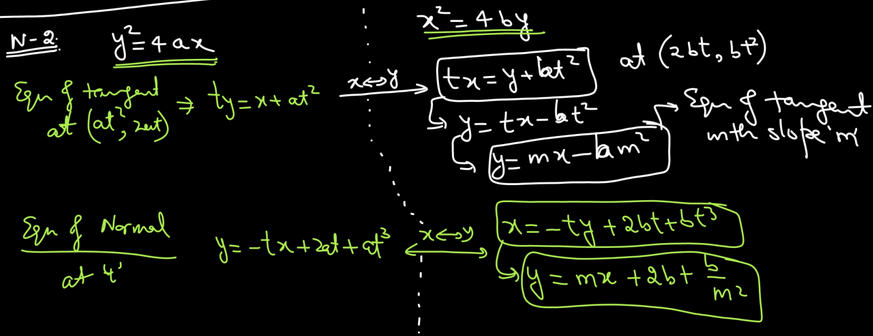 N-2: y² = 4ax
x² = 4by
Eqn of tangent at (at², 2at) ⇒ ty = x + at²
x↔y
tx = y + bt² at (2bt, bt²)
y = tx - bt²
y = mx - bm²
Eqn of tangent with slope 'm'
Eqn of Normal at 't'
y = -tx + 2at + at³
x↔y
x = -ty + 2bt + bt³
y = mx + 2b + b/m²